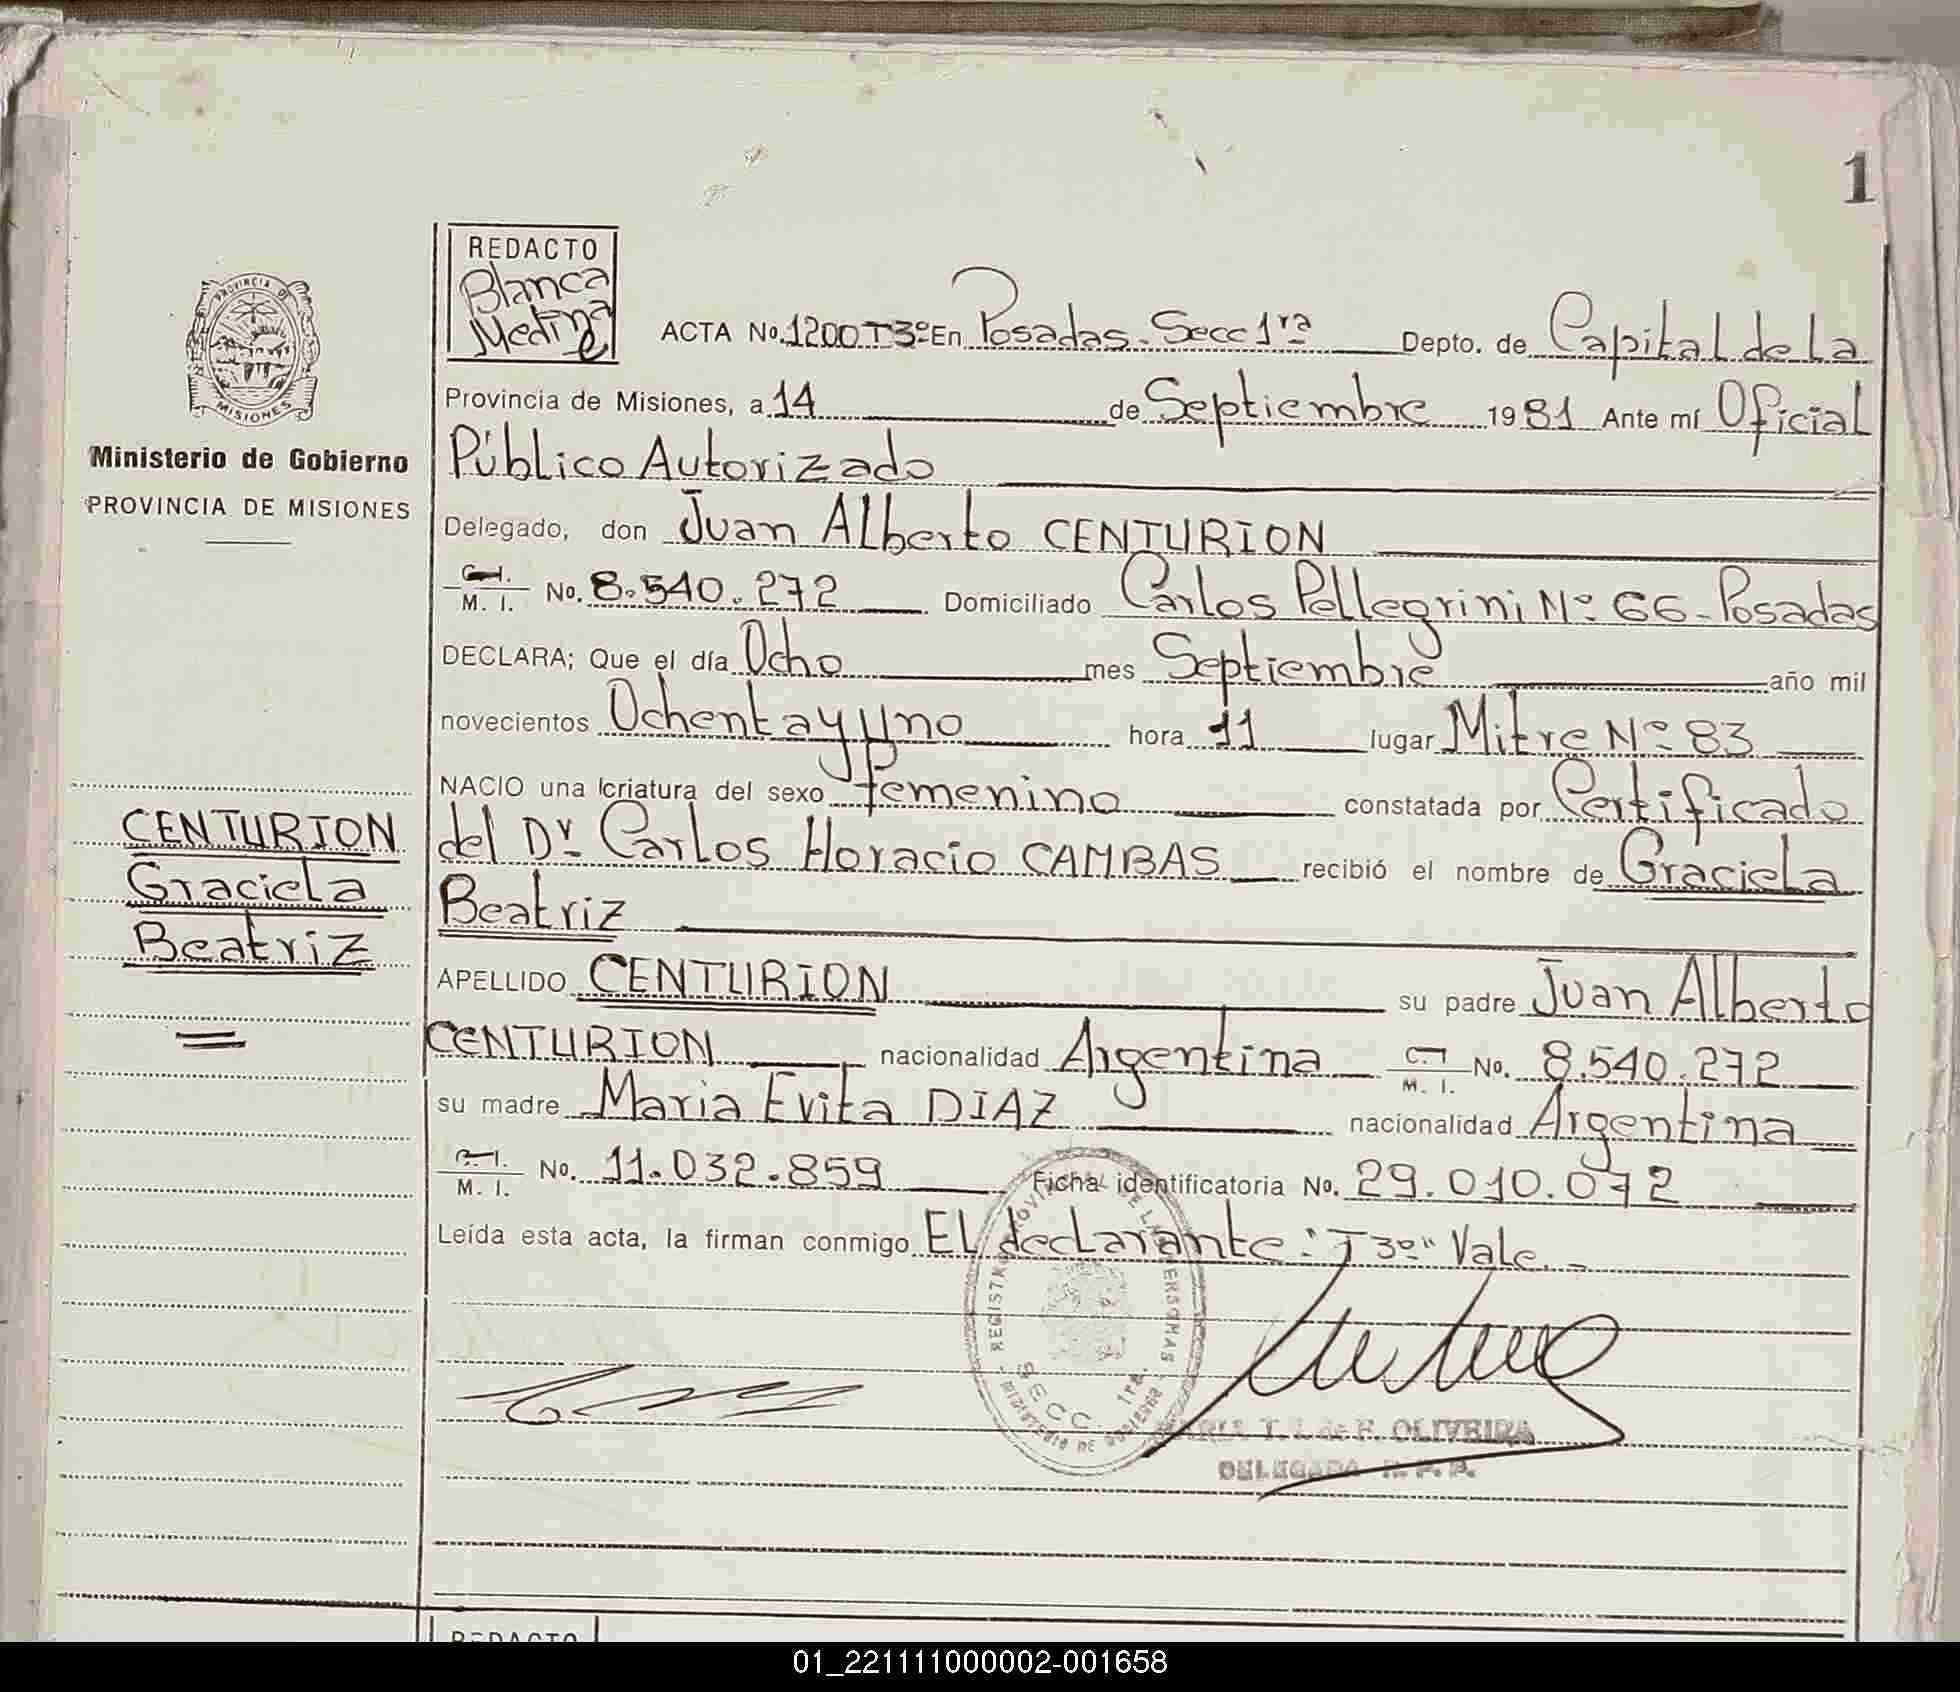 1
REDACTO
Blanca
Medina
PROVINCIA DE
MISIONES
Ministerio de Gobierno
PROVINCIA DE MISIONES
CENTURION
Graciela
Beatriz
ACTA No. 1200 T3º En Posadas - Secc 1ra Depto. de Capital de la
Provincia de Misiones, a 14 de Septiembre 1981 Ante mí Oficial
Público Autorizado
Delegado, don Juan Alberto CENTURION
C. I. M. I. No. 8.540.272 Domiciliado Carlos Pellegrini Nº 66 - Posadas
DECLARA; Que el día Ocho mes Septiembre año mil
novecientos Ochenta y uno hora 11 lugar Mitre Nº 83
NACIO una criatura del sexo femenino constatada por Certificado
del Dr Carlos Horacio CAMBAS recibió el nombre de Graciela
Beatriz
APELLIDO CENTURION su padre Juan Alberto
CENTURION nacionalidad Argentina C. I. M. I. No. 8.540.272
su madre Maria Evita DIAZ nacionalidad Argentina
C. I. M. I. No. 11.032.859 Ficha identificatoria No. 29.010.072
Leída esta acta, la firman conmigo El declarante: "T3º" Vale.-
REGISTRO PROVINCIAL DE LAS PERSONAS
SECC. 1ra.
MINISTERIO DE GOBIERNO
MARIA T. L. de F. OLIVEIRA
DELEGADA R. P. P.
REDACTO
01_221111000002-001658